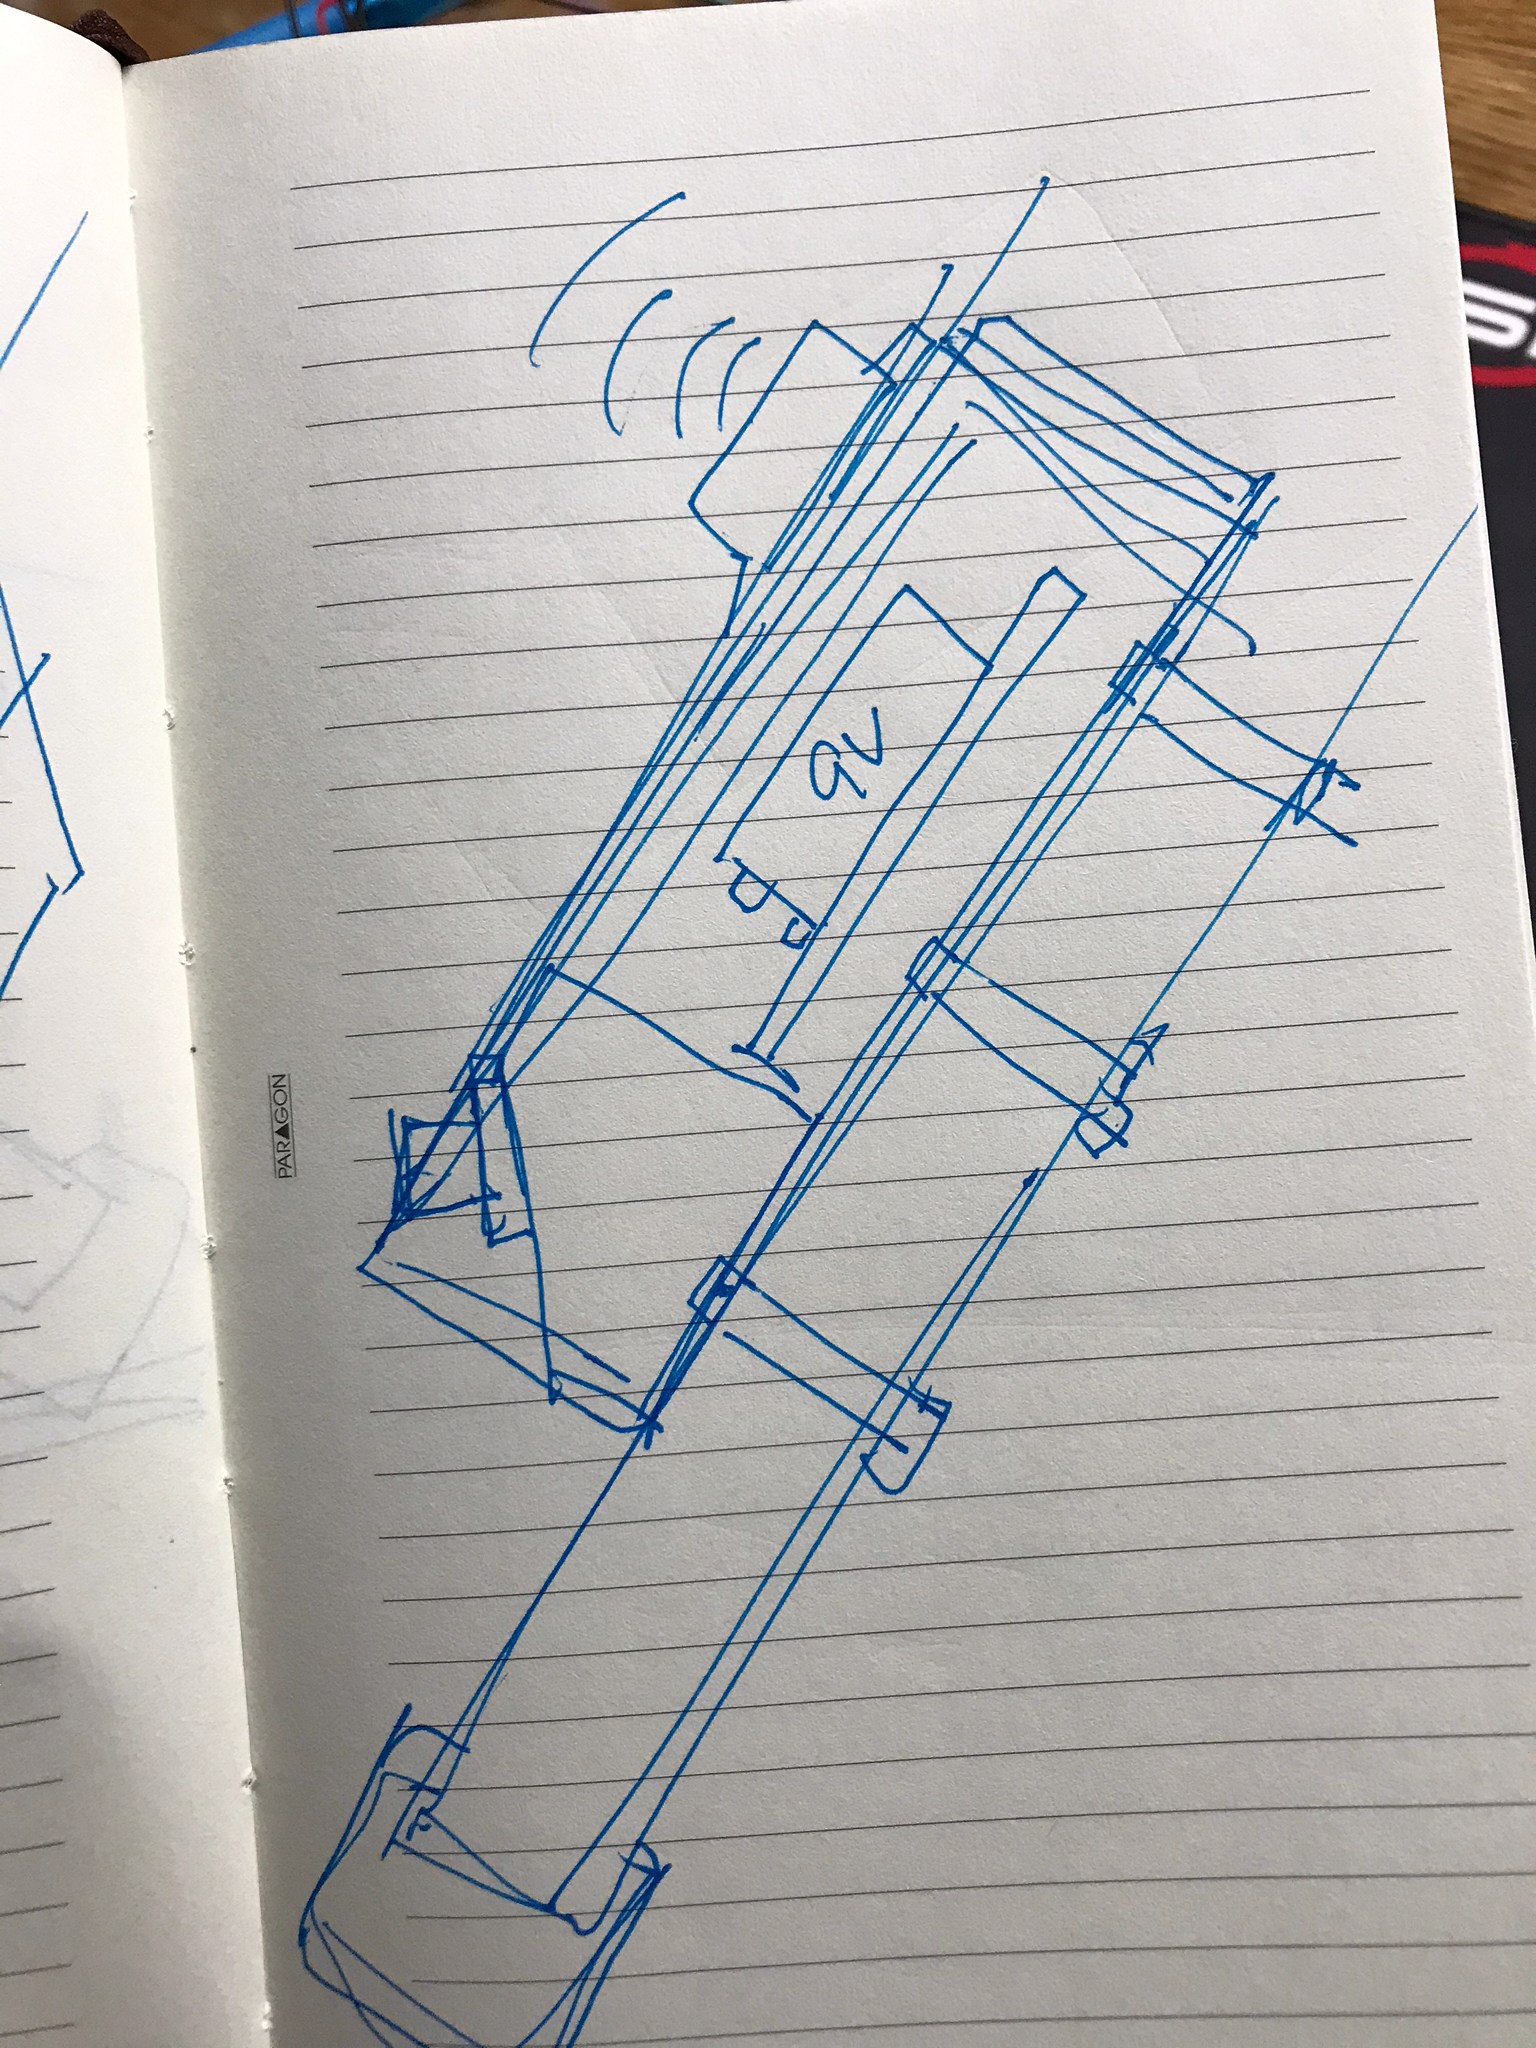 9V
PARAGON